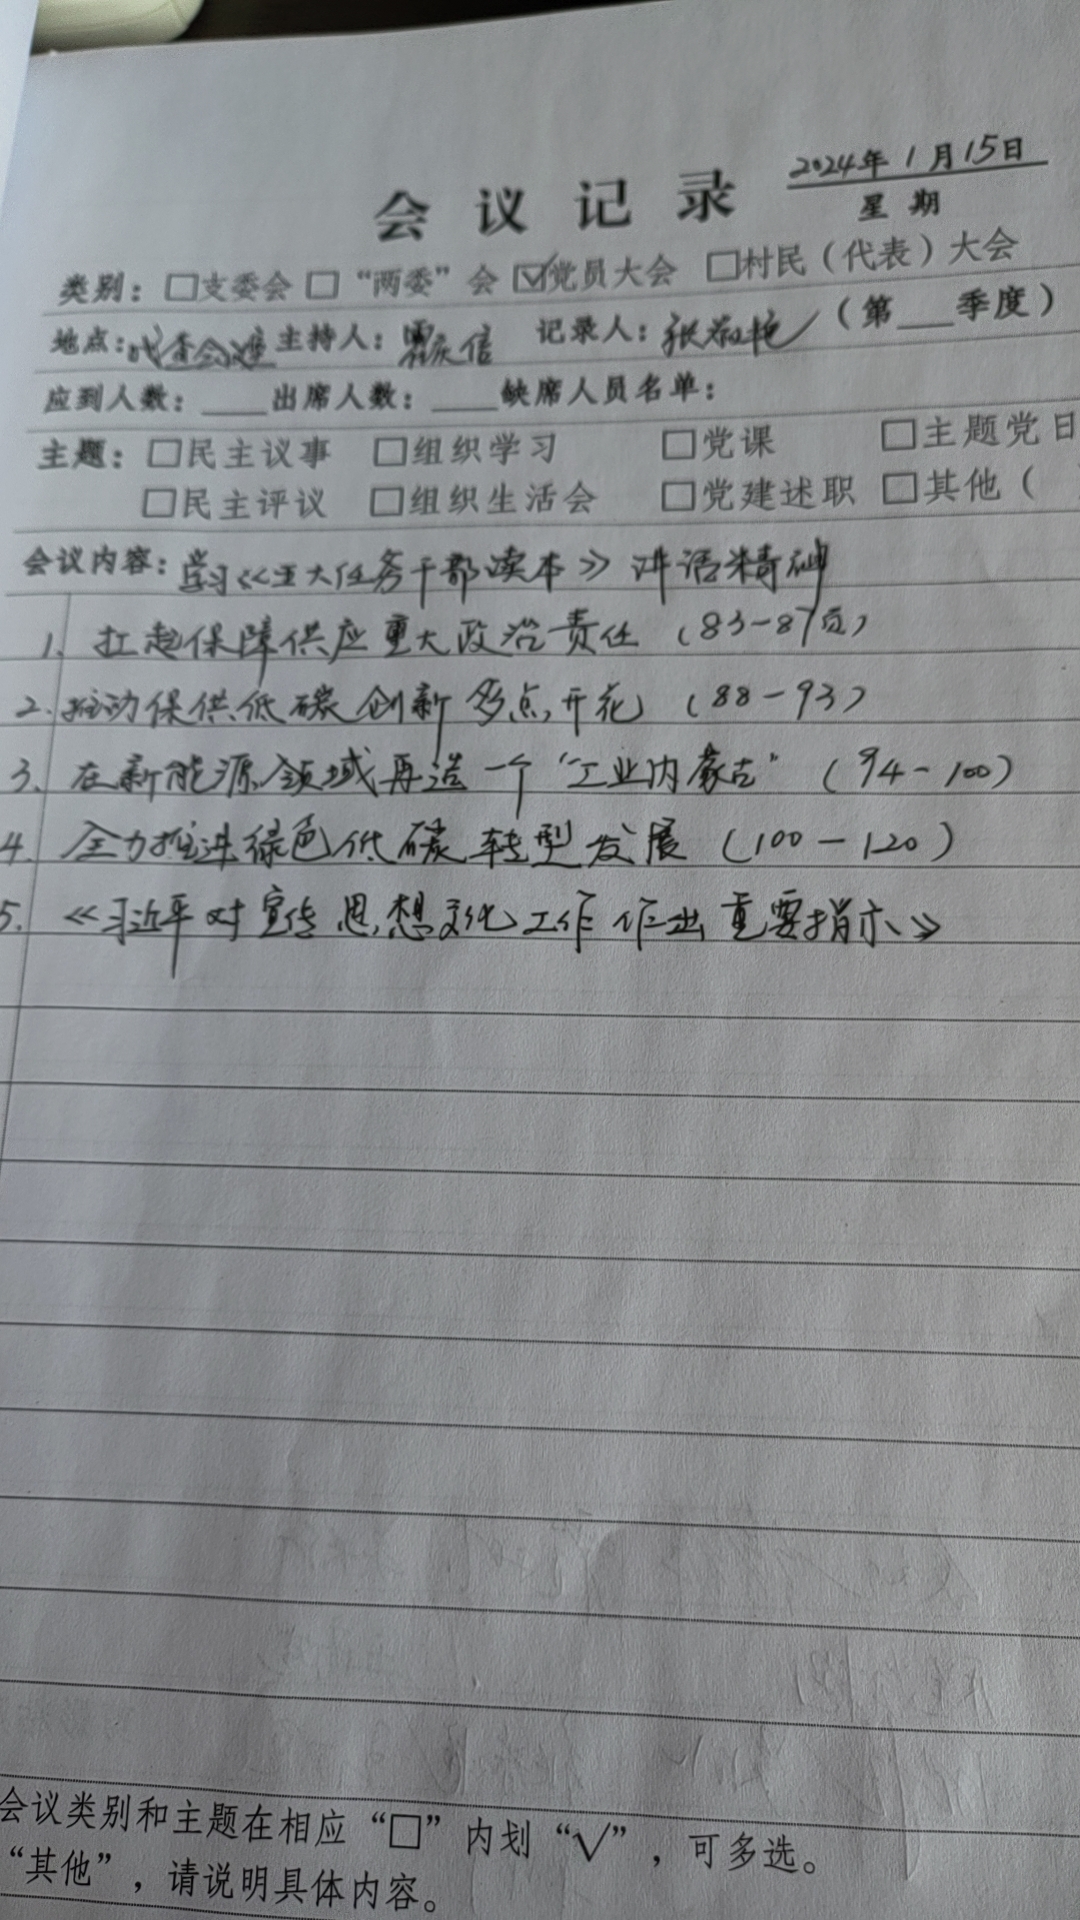 2024年1月15日
会议记录
星期
类别：□支委会 □“两委”会 ☑党员大会 □村民（代表）大会
地点： 主持人： 记录人： （第___季度）
应到人数：____出席人数：____缺席人员名单：
主题：□民主议事 □组织学习 □党课 □主题党日
□民主评议 □组织生活会 □党建述职 □其他（
会议内容：学习《五大任务干部读本》讲话精神
1. 扛起保障供应重大政治责任（83-87页）
2. 推动保供低碳创新多点开花（88-93）
3. 在新能源领域再造一个“工业内蒙古”（94-100）
4. 全力推进绿色低碳转型发展（100-120）
5. 《习近平对宣传思想文化工作作出重要指示》
会议类别和主题在相应“□”内划“√”，可多选。
“其他”，请说明具体内容。